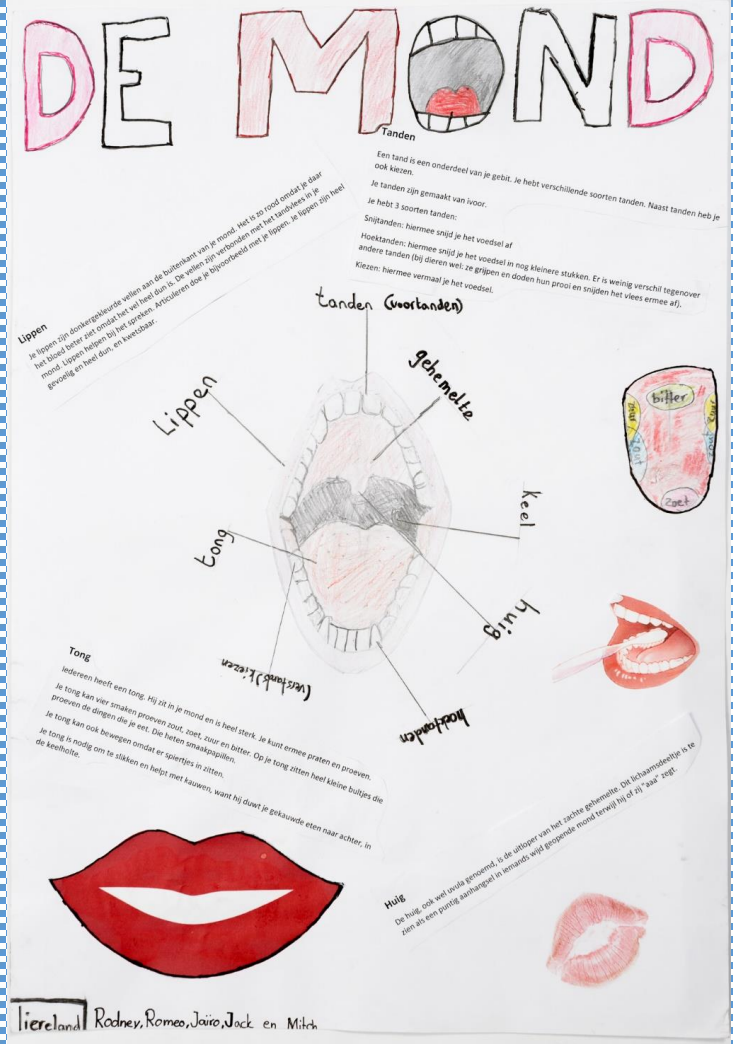 DE MOND
Tanden
Een tand is een onderdeel van je gebit. Je hebt verschillende soorten tanden. Naast tanden heb je
ook kiezen.
Je tanden zijn gemaakt van ivoor.
Je hebt 3 soorten tanden:
Snijtanden: hiermee snijd je het voedsel af
Hoektanden: hiermee snijd je het voedsel in nog kleinere stukken. Er is weinig verschil tegenover
andere tanden (bij dieren wel: ze grijpen en doden hun prooi en snijden het vlees ermee af).
Kiezen: hiermee vermaal je het voedsel.
Lippen
Je lippen zijn donkergekleurde vellen aan de buitenkant van je mond. Het is zo rood omdat je daar
het bloed beter ziet omdat het vel heel dun is. De vellen zijn verbonden met het tandvlees in je
mond. Lippen helpen bij het spreken. Articuleren doe je bijvoorbeeld met je lippen. Je lippen zijn heel
gevoelig en heel dun, en kwetsbaar.
tanden (voortanden)
gehemelte
Lippen
bitter
zuur
zout
zuur
zout
zoet
keel
tong
huig
(verstand) kiezen
hoektanden
Tong
Iedereen heeft een tong. Hij zit in je mond en is heel sterk. Je kunt ermee praten en proeven.
Je tong kan vier smaken proeven zout, zoet, zuur en bitter. Op je tong zitten heel kleine bultjes die
proeven de dingen die je eet. Die heten smaakpapillen.
Je tong kan ook bewegen omdat er spiertjes in zitten.
Je tong is nodig om te slikken en helpt met kauwen, want hij duwt je gekauwde eten naar achter, in
de keelholte.
Huig
De huig, ook wel uvula genoemd, is de uitloper van het zachte gehemelte. Dit lichaamsdeeltje is te
zien als een puntig aanhangsel in iemands wijd geopende mond terwijl hij of zij "aaa" zegt.
liereland Rodney, Romeo, Jaïro, Jack en Mitch